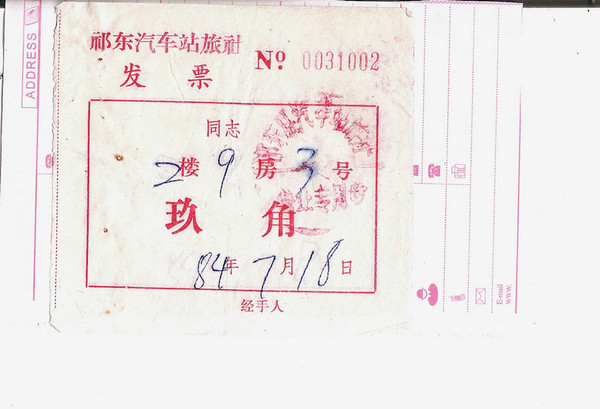 祁东汽车站旅社
发票
Nº 0031002
同志
2楼9房3号
玖角
84年7月18日
经手人
ADDRESS
E-mail
www.